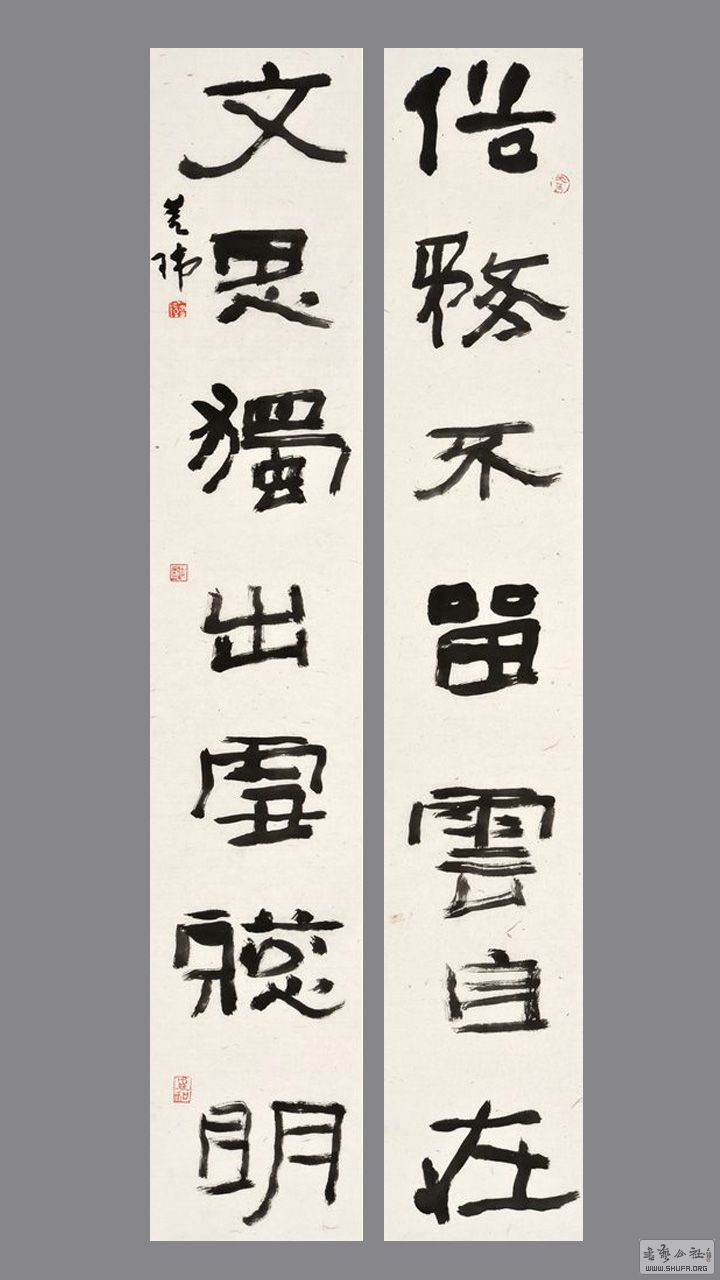 俗務不留雲自在
文思獨出雪聰明
書藝公社
WWW.SHUFA.ORG